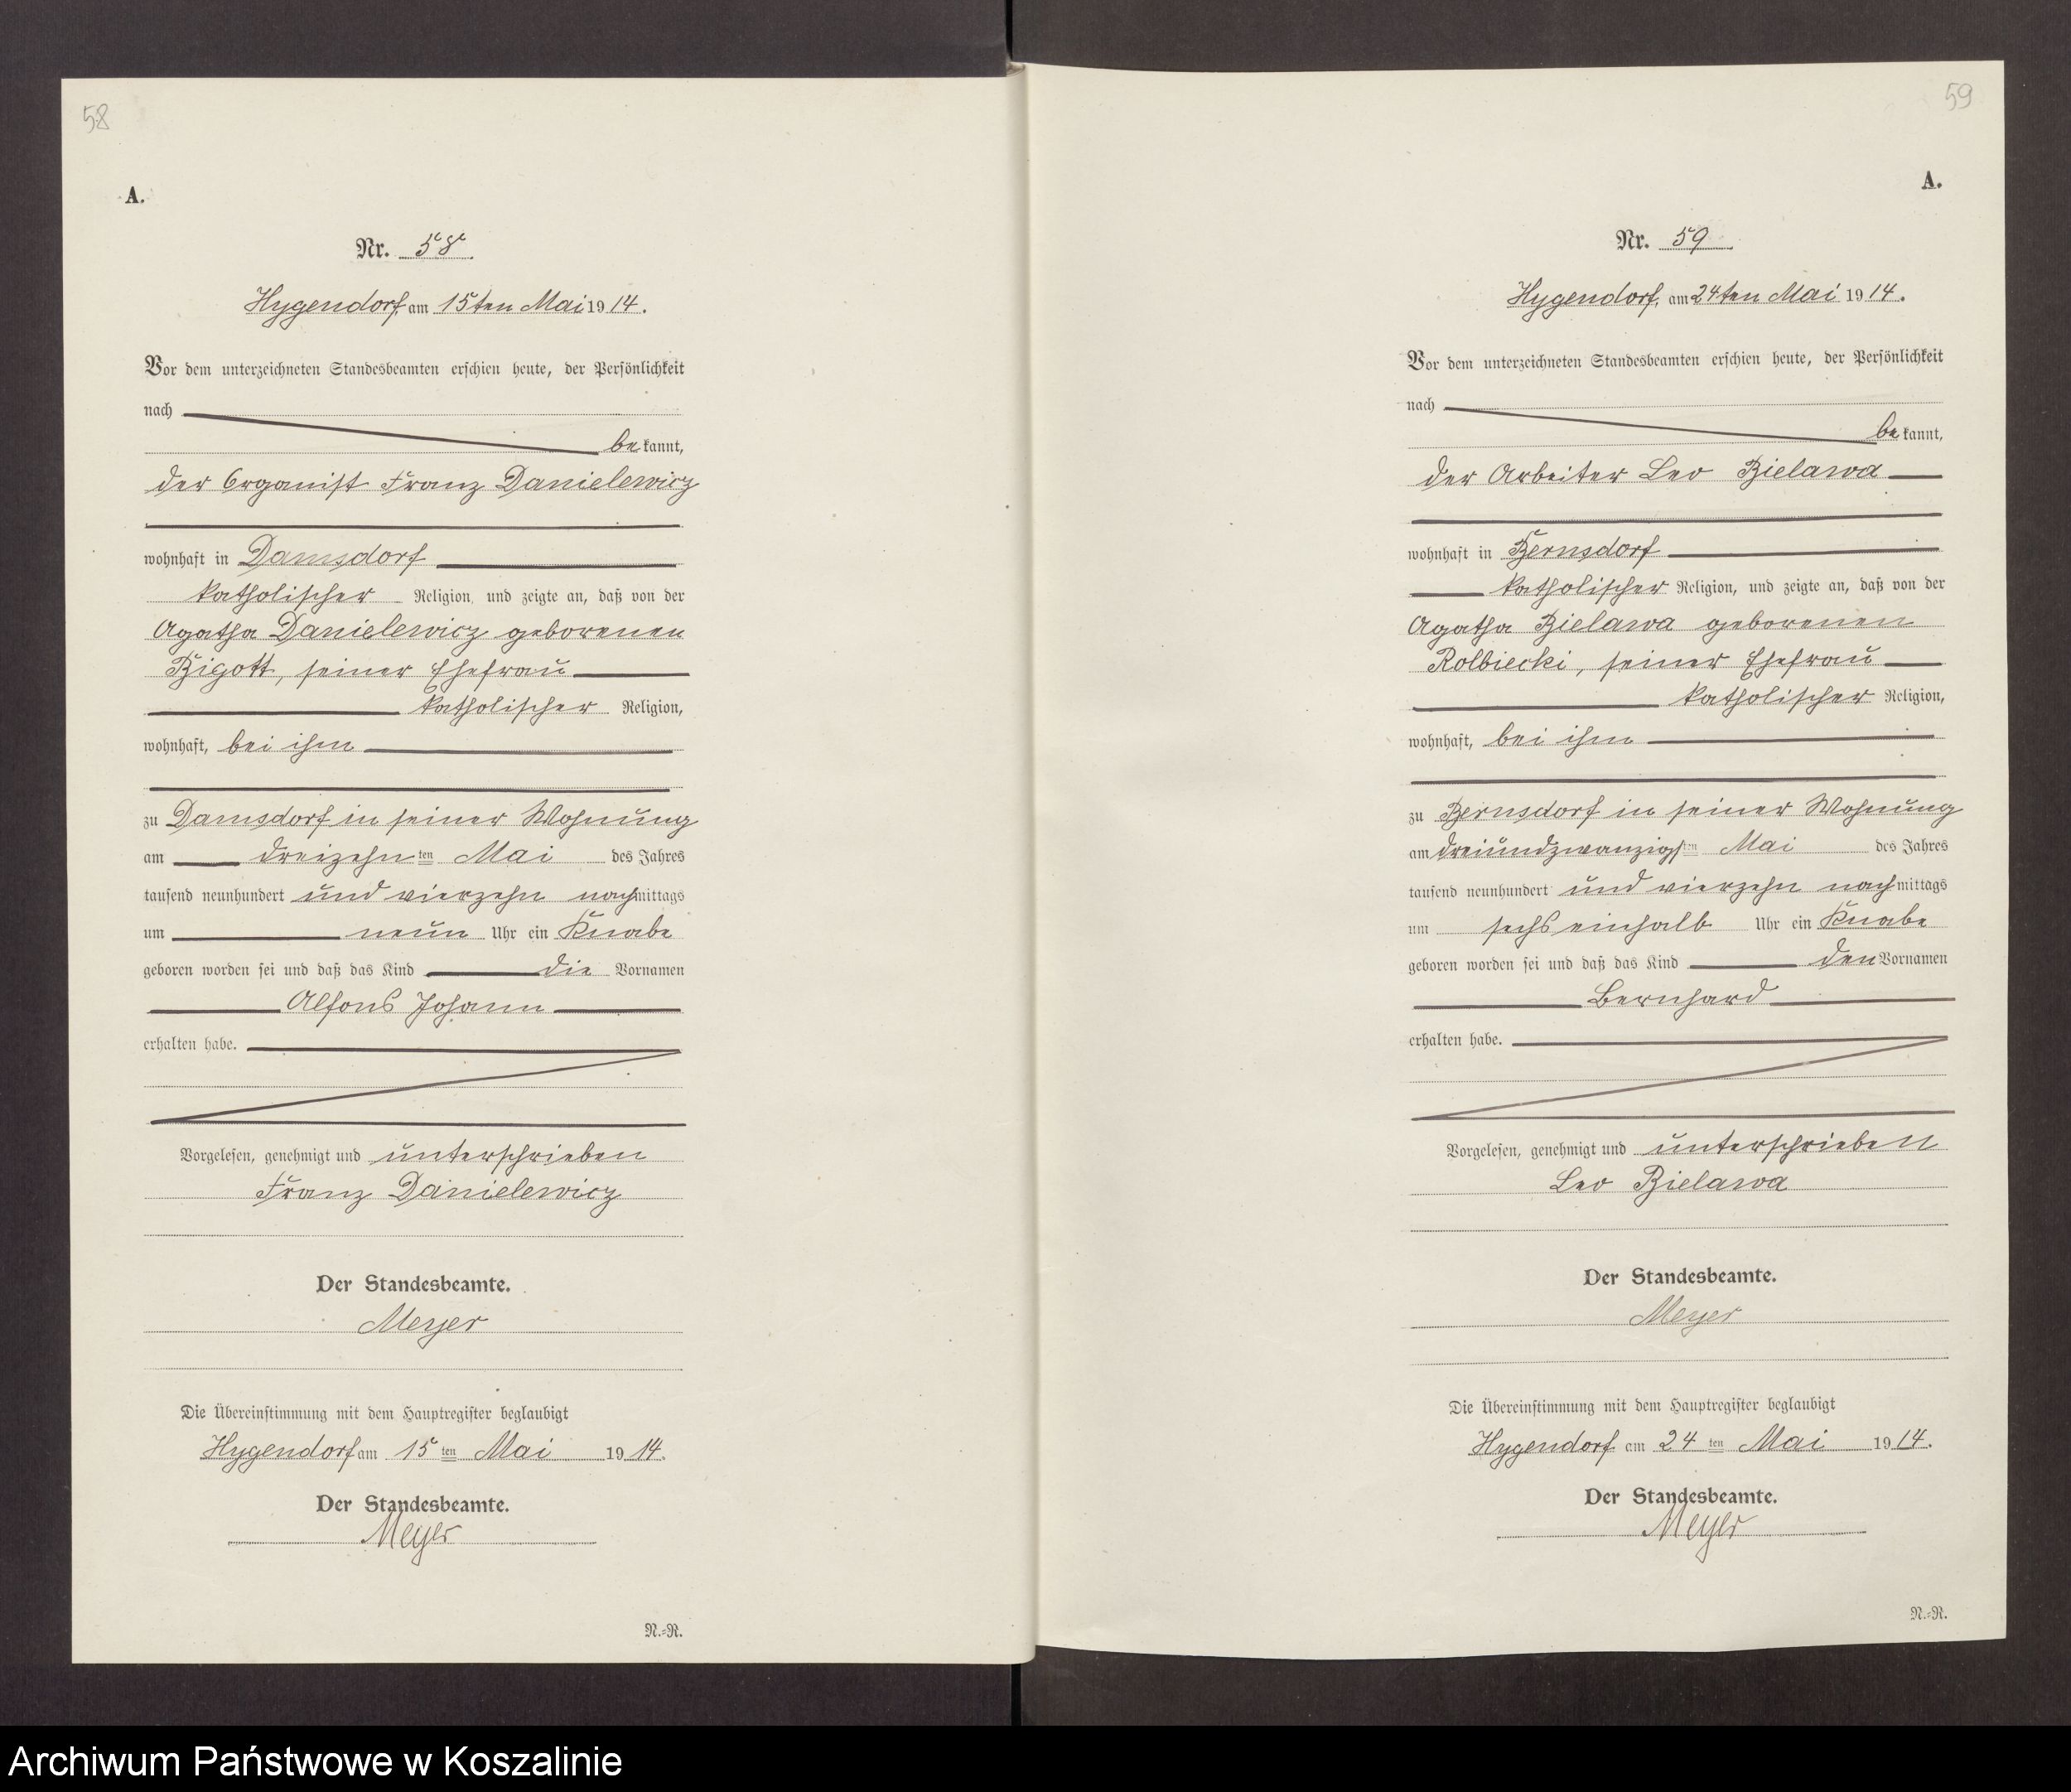 58
A.
Nr. 58
Hygendorf, am 15ten Mai 1914.
Vor dem unterzeichneten Standesbeamten erschien heute, der Persönlichkeit
nach
bekannt,
der Organist Franz Danielewicz
wohnhaft in Damsdorf
katholischer Religion, und zeigte an, daß von der
Agatha Danielewicz geborenen
Bigott, seiner Ehefrau
katholischer Religion,
wohnhaft, bei ihm
zu Damsdorf in seiner Wohnung
am dreizehnten Mai des Jahres
tausend neunhundert und vierzehn nachmittags
um neun Uhr ein Knabe
geboren worden sei und daß das Kind die Vornamen
Alfons Johann
erhalten habe.
Vorgelesen, genehmigt und unterschrieben
Franz Danielewicz
Der Standesbeamte.
Meyer
Die Übereinstimmung mit dem Hauptregister beglaubigt
Hygendorf am 15ten Mai 1914.
Der Standesbeamte.
Meyer
N.=R.
59
A.
Nr. 59
Hygendorf, am 24ten Mai 1914.
Vor dem unterzeichneten Standesbeamten erschien heute, der Persönlichkeit
nach
bekannt,
der Arbeiter Leo Bielawa
wohnhaft in Bernsdorf
katholischer Religion, und zeigte an, daß von der
Agatha Bielawa geborenen
Rolbiecki, seiner Ehefrau
katholischer Religion,
wohnhaft, bei ihm
zu Bernsdorf in seiner Wohnung
am dreiundzwanzigsten Mai des Jahres
tausend neunhundert und vierzehn nachmittags
um sechs einhalb Uhr ein Knabe
geboren worden sei und daß das Kind den Vornamen
Bernhard
erhalten habe.
Vorgelesen, genehmigt und unterschrieben
Leo Bielawa
Der Standesbeamte.
Meyer
Die Übereinstimmung mit dem Hauptregister beglaubigt
Hygendorf am 24ten Mai 1914.
Der Standesbeamte.
Meyer
N.=R.
Archiwum Państwowe w Koszalinie